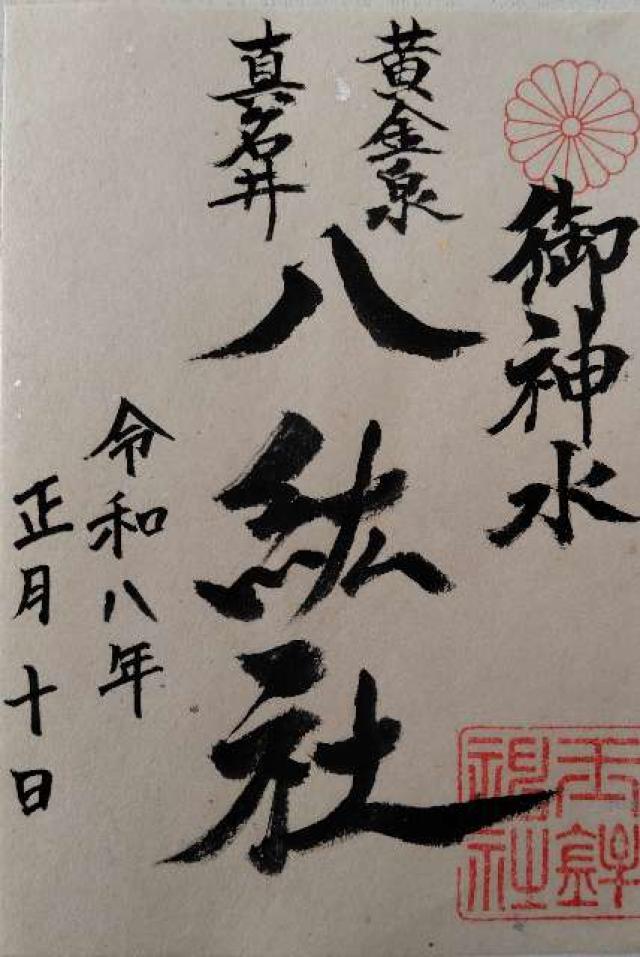 御神水
黄金泉
真名井
八紘社
令和八年
正月十日